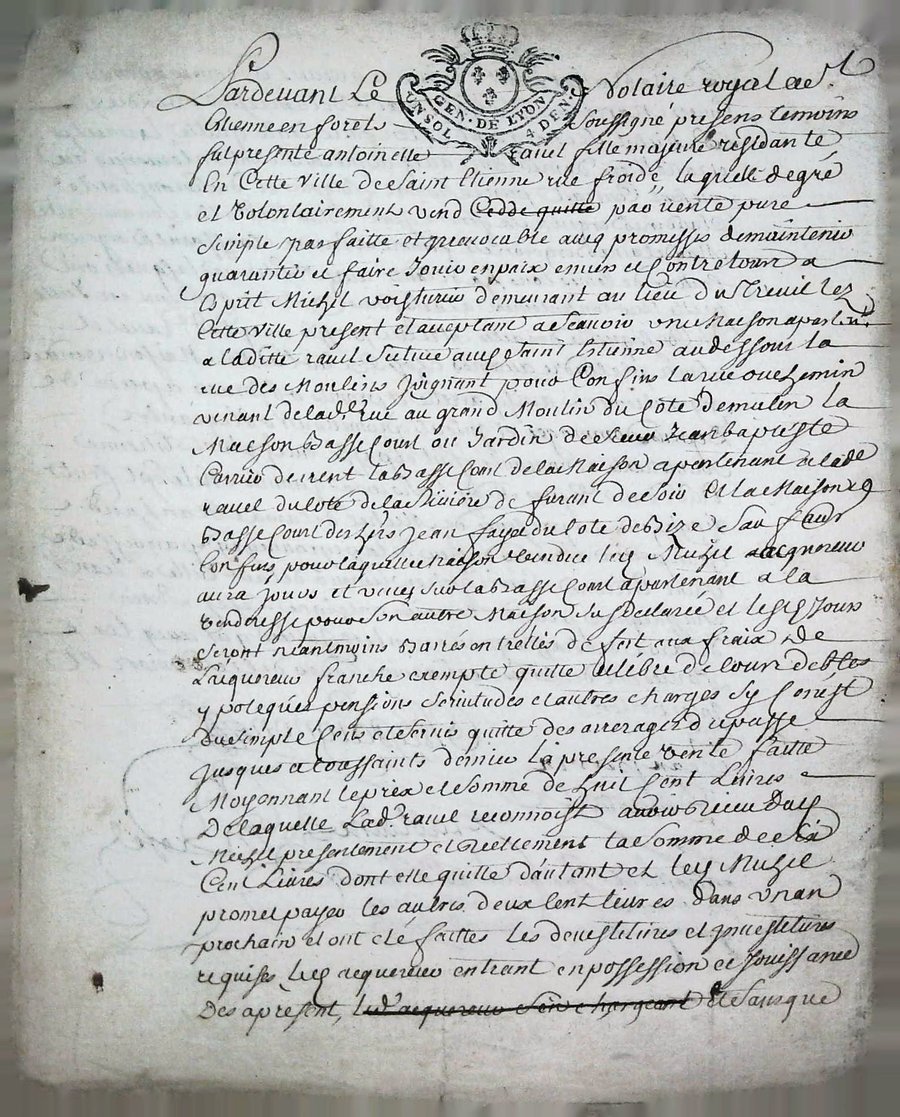 Pardevant Le Notaire royal de St
UN SOL GEN. DE LYON 4 DEN.
Etienne en forets Soussigné presens temoins
fut presente antoinette ravel fille majeure residante
En Cette Ville de Saint Etienne rue froide, laquelle de gré
et Volontairement vend Cedde quitte par vente pure
simple parfaitte et irrevocable avec promesse de maintenir
guarantir et faire Jouir en paix envers et Contre tous a
Esprit Michel voiturier demeurant au lieu du treuil lez
Cette ville present et acceptant a scavoir une Maison apartente
a laditte ravel scituée audit Saint Etienne au dessous la
rue des Moulins Joignant pour Confins la rue ou Chemin
venant de lade rue au grand Moulin du Coté de matin la
Maison Basse Court ou Jardin de Sieur Jean baptiste
Carrier de vent la Basse Court de la Maison apartenant a lade
ravel du coté de la Riviere de furant de soir Et la Maison et
Basse Court des hers Jean faye du coté de Bize Sauf leurs
Confins pour laquelle Maison Vendue led. Michel acquereur
aura Jours et veues sur la Basse Court apartenant a la
Venderesse pour son autre Maison sus Declarée et lesd. Jours
seront neantmoins Barrés en trellis de fer aux fraix de
L'aquereur franche exempte quitte et libre de tous debtes
ypoteques pensions servitudes et autres charges sy Ce n'est
Du simple Cens et servis quitte des arrerages du passé
Jusques a toussaints dernier La presente vente faitte
Moyennant le prix et somme de huit Cent Livres
De laquelle Lade ravel reconnoist avoir recu dud.
Michel presentement et reellement la somme de six
Cent Livres dont elle quitte d'autant et led. Michel
promet payer les autres deux Cent livres dans un an
prochain et ont eté faittes les devestitures et investitures
requises led. acquereur entrant en possession et Jouissance
Des apresent, led. acquereur s'en chargeant et sans que